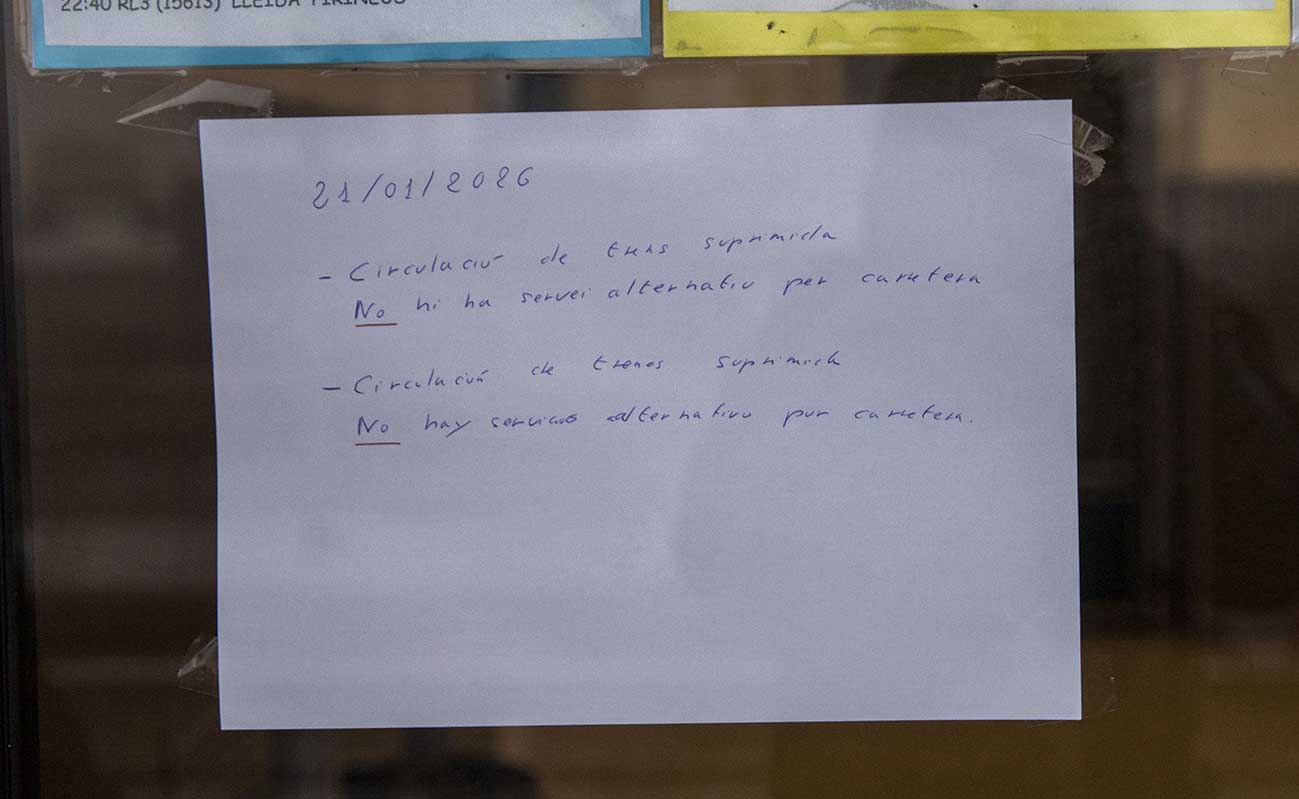 22:40 RL3 (15613) LLEIDA PIRINEUS
21/01/2026
- Circulació de trens suprimida
No hi ha servei alternatiu per carretera
- Circulación de trenes suprimida
No hay servicios alternativo por carretera.